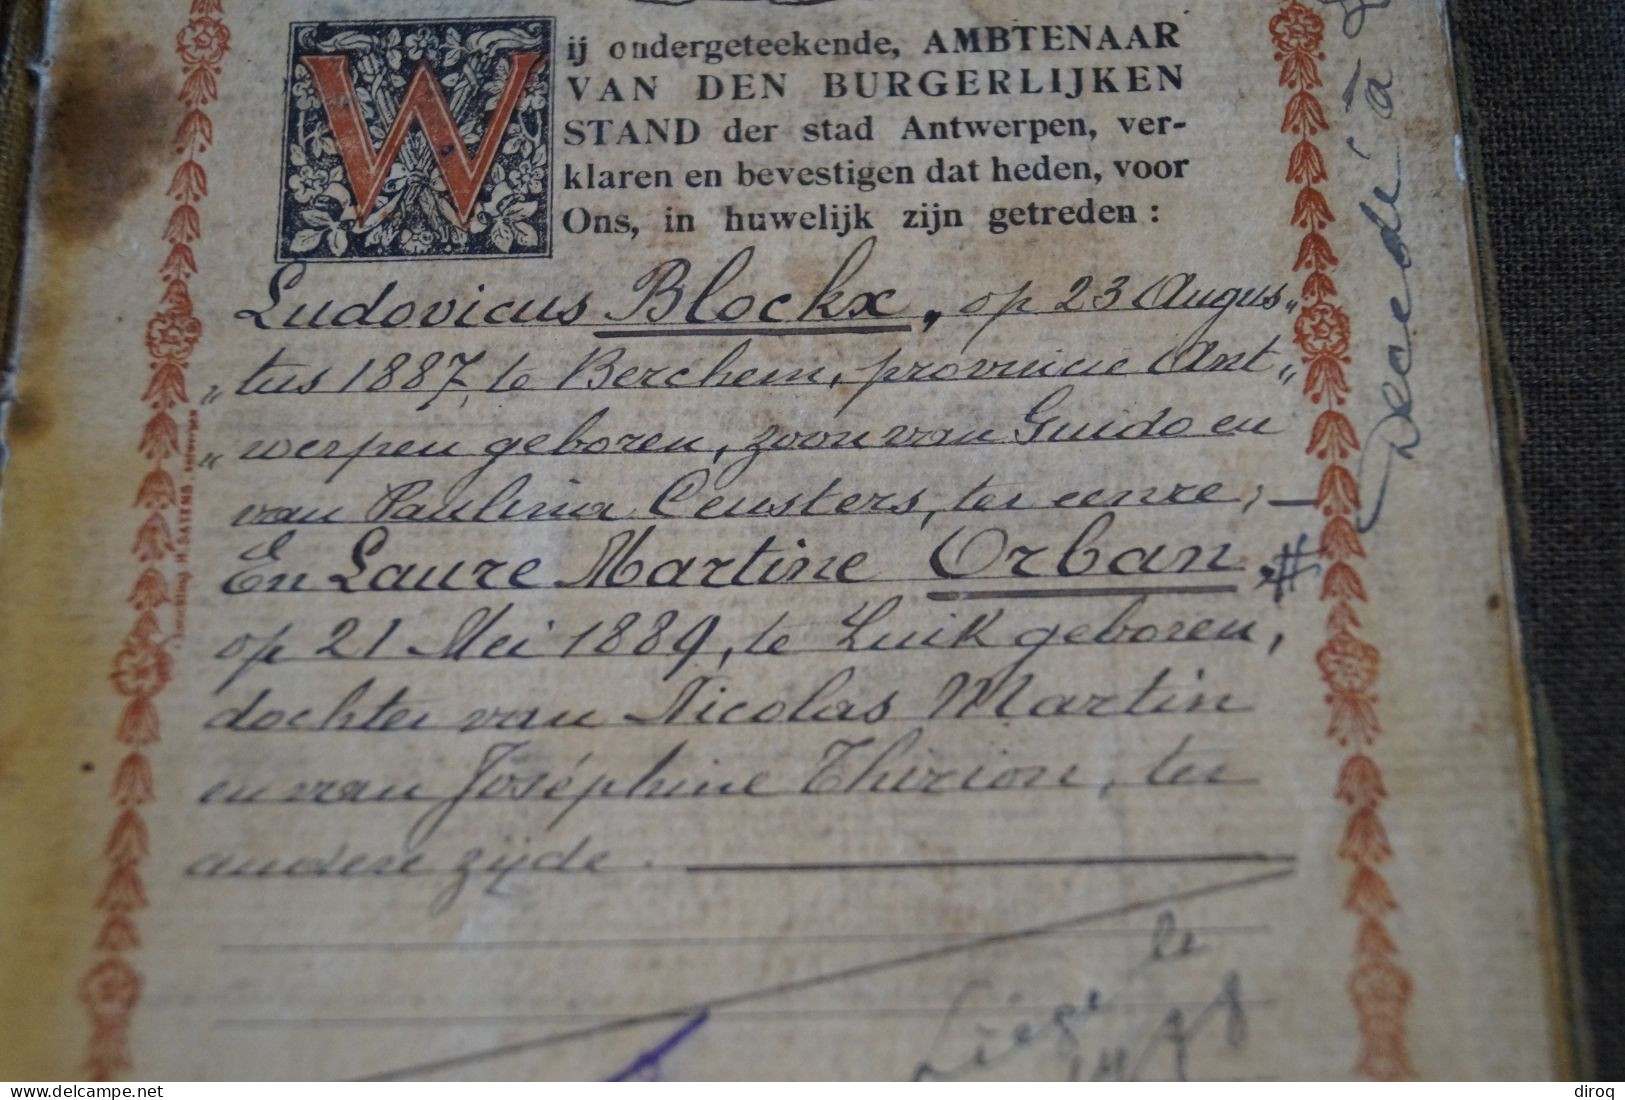 Wij ondergeteekende, AMBTENAAR
VAN DEN BURGERLIJKEN
STAND der stad Antwerpen, ver-
klaren en bevestigen dat heden, voor
Ons, in huwelijk zijn getreden :
Ludovicus Blockx, op 23 Augus„
„tus 1887, te Berchem, provincie Ant„
„werpen geboren, zoon van Guido en
van Paulina Ceusters, ter eenre; —
En Laure Martine Orban, #
op 21 Mei 1889, te Luik geboren,
dochter van Nicolas Martin
en van Joséphine Thirion, ter
andere zijde. —
Liège le
Decedé à
diroq